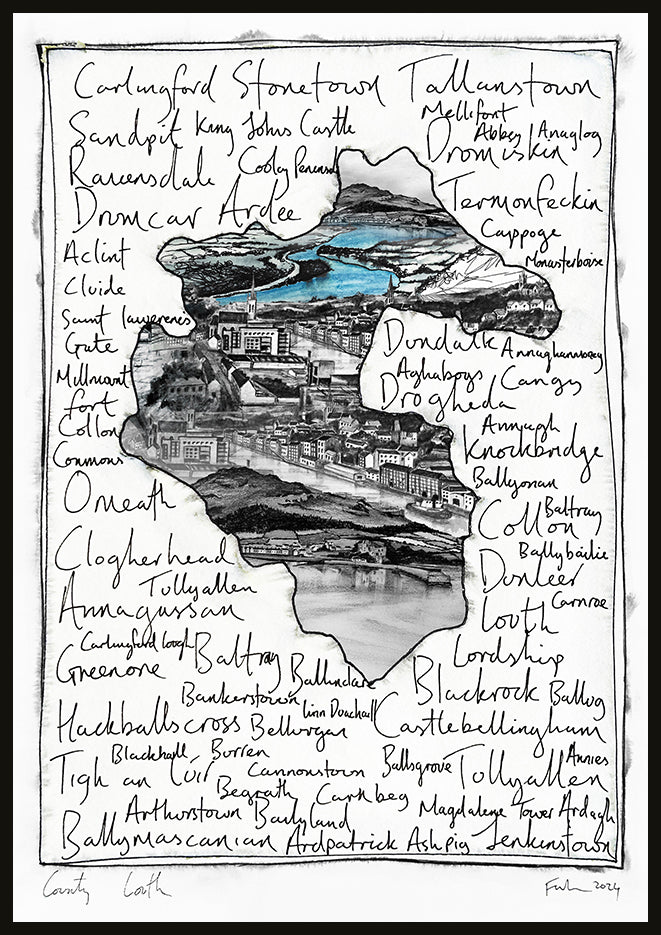 Carlingford Stonetown Tallanstown
Mellifont
Sandpit King Johns Castle
Abbey Anaglog
Dromiskin
Ravensdale Cooley
Termonfeckin
Dromcar Ardee
Cappoge
Aclint
Monasterboise
Cluide
Saint
Gate
Dundalk
Millmount
Aghaboys Cangy
fort
Drogheda
Collon
Annagh
Commons
Knockbridge
Ballyonan
Omeath
Baltray
Collon
Clogherhead
Ballybailie
Dunleer
Tullyallen
Carnroe
Annagassan
Louth
Carlingford lough
Baltray
Lordship
Greenore
Ballindare
Blackrock Ballug
Bankerstown
linn Duachaill
Hackballscross Bellurgan Castlebellingham
Blackhall Burren
Annies
Tigh an Iúir Cannonstown Ballsgrove Tullyallen
Begrath Carnbeg
Arthurstown Bailyland Magdalene Tower Ardagh
Ballymascanlan Ardpatrick Ashpig Jenkinstown
County Louth
2024